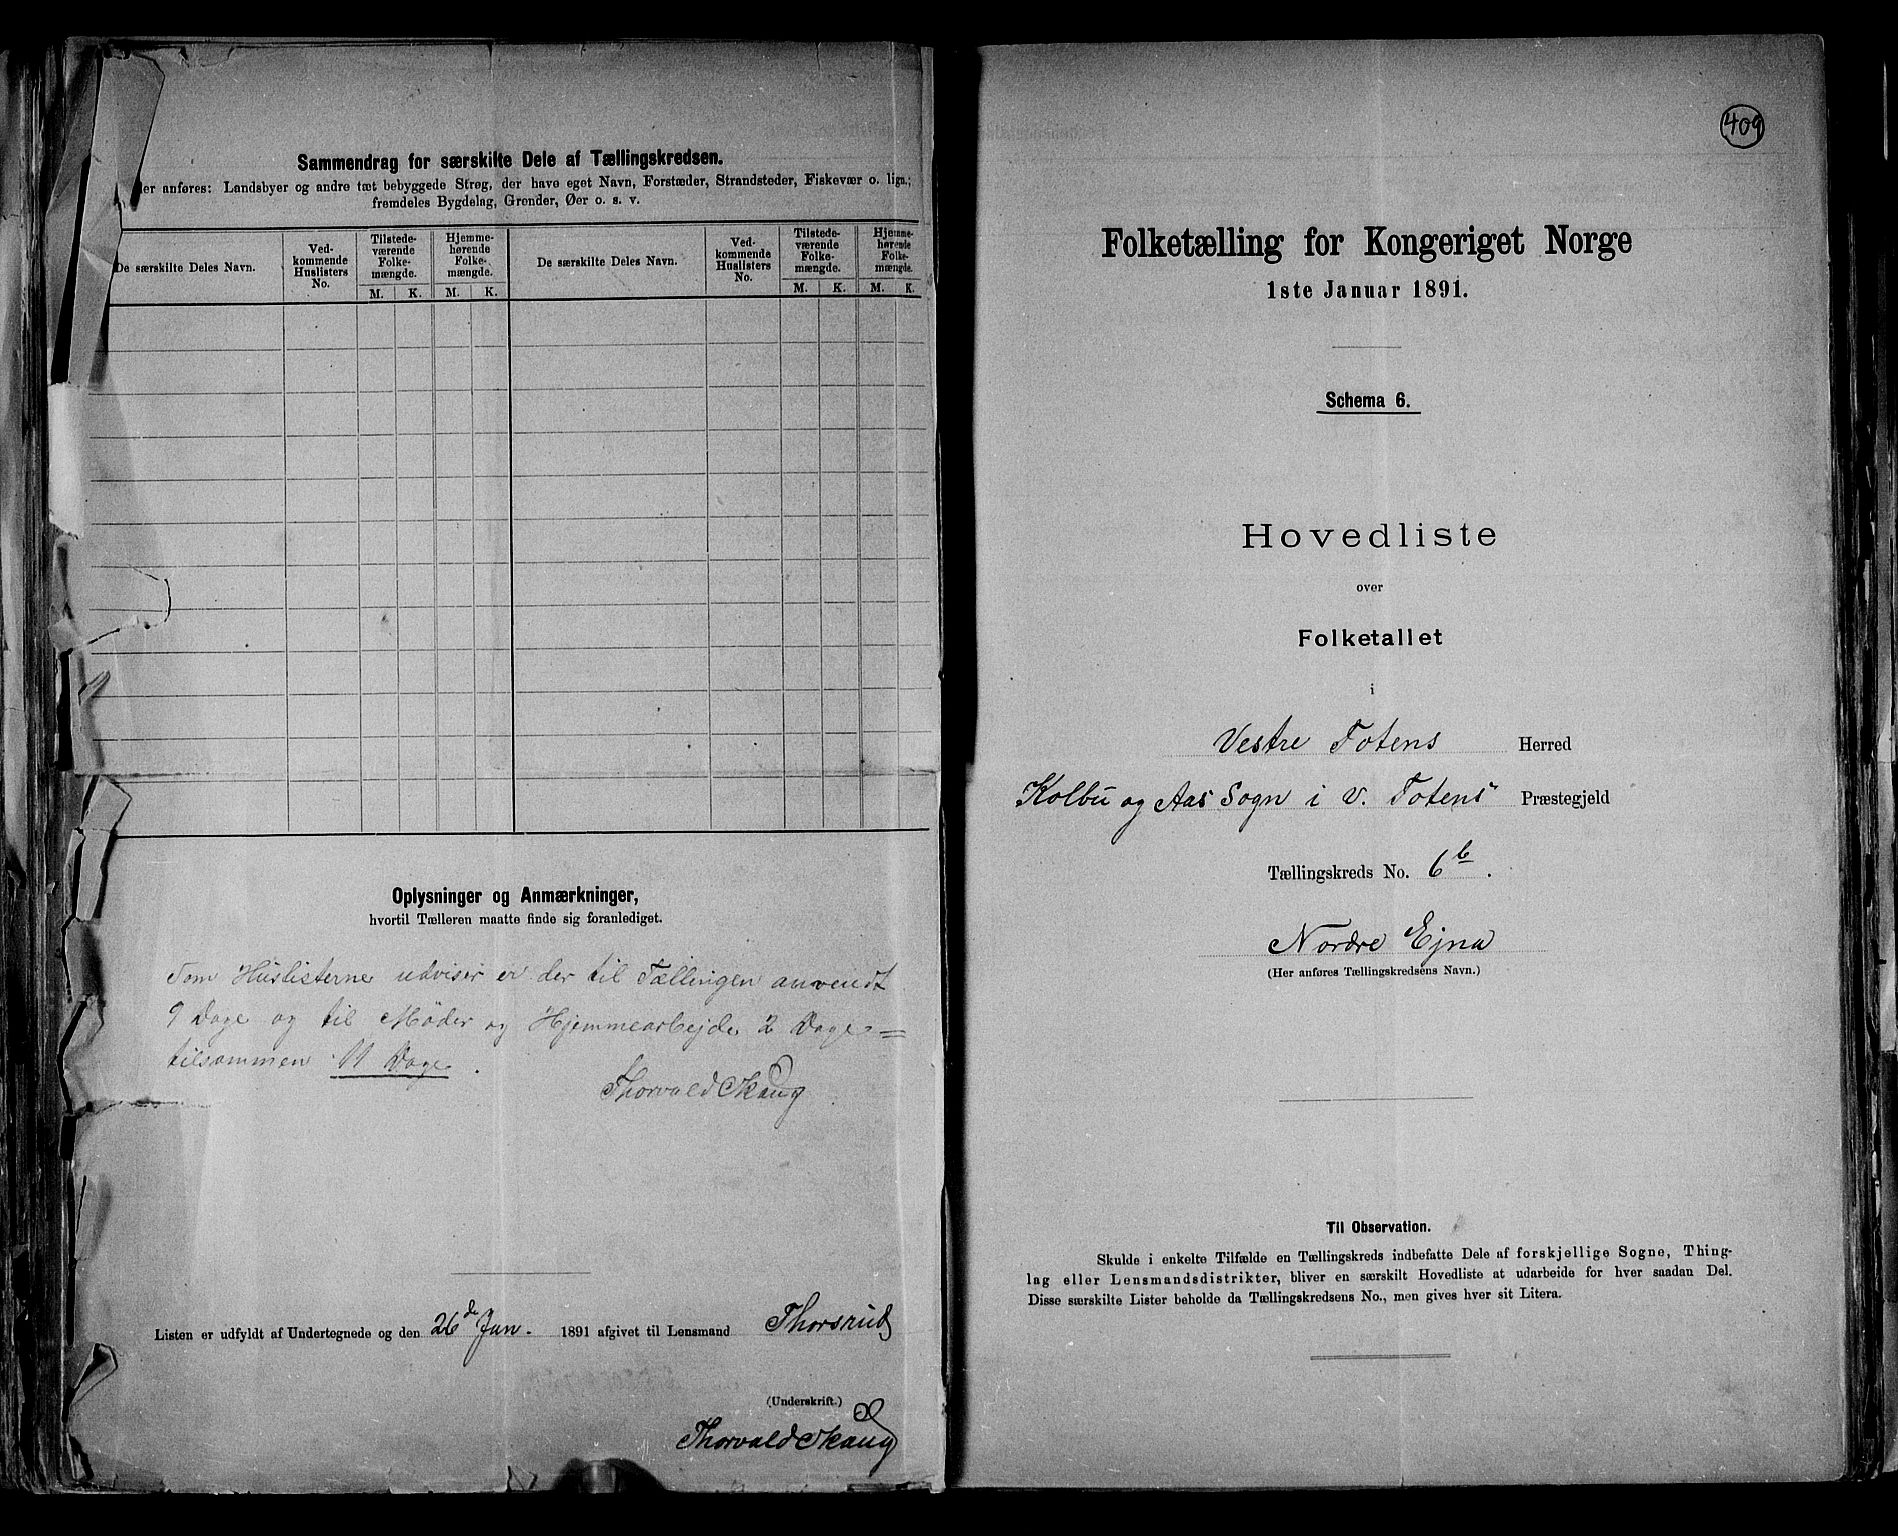 Sammendrag for særskilte Dele af Tællingskredsen.
er anføres: Landsbyer og andre tæt bebyggede Strøg, der have eget Navn, Forstæder, Strandsteder, Fiskevær o. lign.;
fremdeles Bygdelag, Grender, Øer o. s. v.
De særskilte Deles Navn.
Ved-
kommende
Huslisters
No.
Tilstede-
værende
Folke-
mængde.
M. K.
Hjemme-
hørende
Folke-
mængde.
M. K.
De særskilte Deles Navn.
Ved-
kommende
Huslisters
No.
Tilstede-
værende
Folke-
mængde.
M. K.
Hjemme-
hørende
Folke-
mængde.
M. K.
Oplysninger og Anmærkninger,
hvortil Tælleren maatte finde sig foranlediget.
Som Huslisterne udviser er der til Tællingen anvendt
9 Dage og til Møder og Hjemmearbejde 2 Dage =
tilsammen 11 Dage.
Thorvald Skaug
Listen er udfyldt af Undertegnede og den 26de Jan. 1891 afgivet til Lensmand Thorsrud
(Underskrift.)
Thorvald Skaug
409
Folketælling for Kongeriget Norge
1ste Januar 1891.
Schema 6.
Hovedliste
over
Folketallet
i
Vestre Totens Herred
Kolbu og Aas Sogn i V. Totens Præstegjeld
Tællingskreds No. 6b.
Nordre Ejna
(Her anføres Tællingskredsens Navn.)
Til Observation.
Skulde i enkelte Tilfælde en Tællingskreds indbefatte Dele af forskjellige Sogne, Thing-
lag eller Lensmandsdistrikter, bliver en særskilt Hovedliste at udarbeide for hver saadan Del.
Disse særskilte Lister beholde da Tællingskredsens No., men gives hver sit Litera.